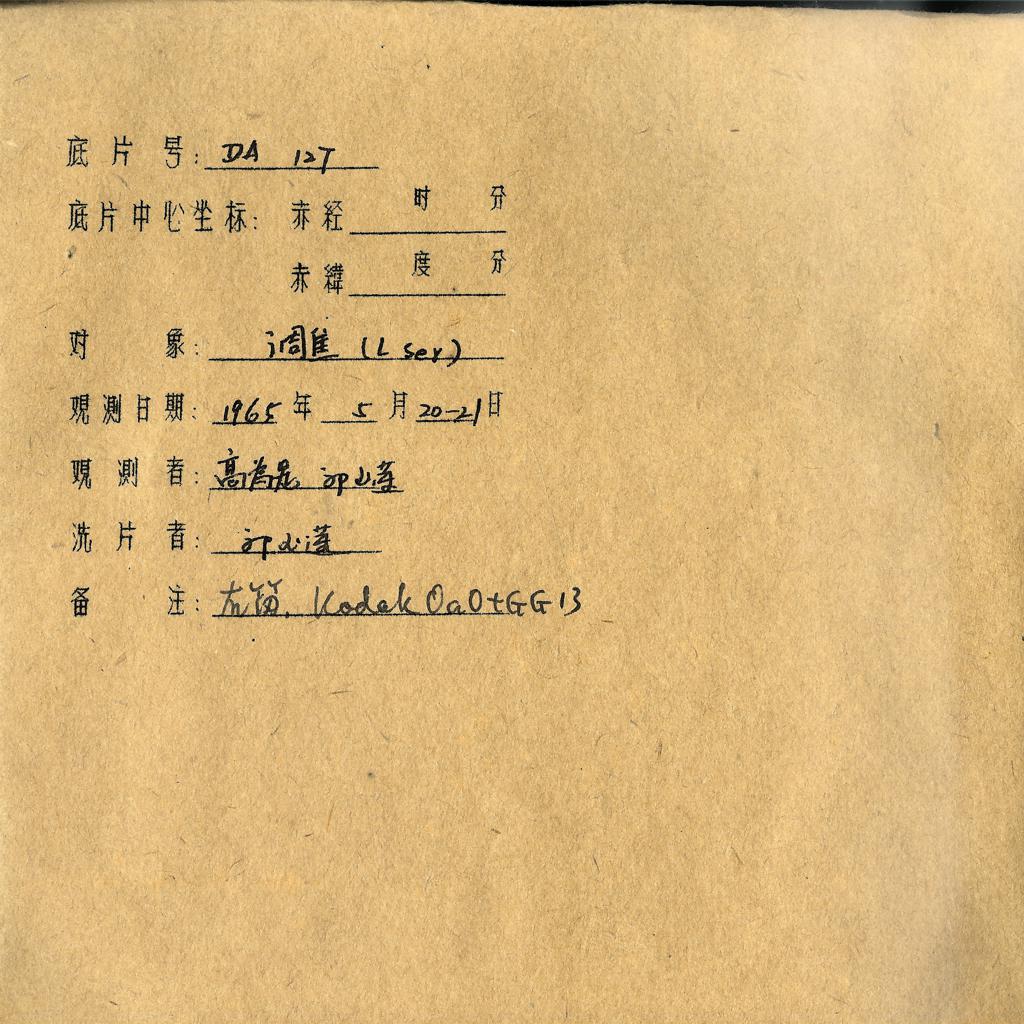 底片号: DA 127
底片中心坐标: 赤经 时 分
赤緯 度 分
对象: 调焦 (L Ser)
观测日期: 1965 年 5 月 20-21 日
观测者: 高为 山莲
洗片者: 山莲
备注: Kodak OaO+GG13